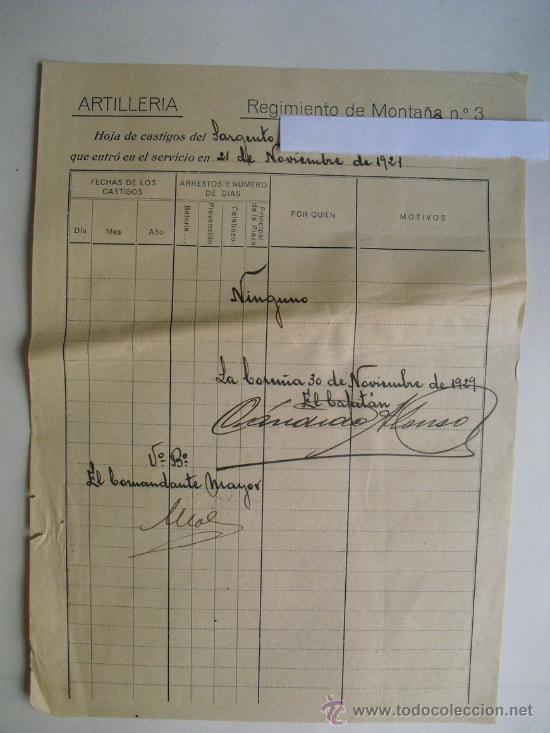 ARTILLERIA Regimiento de Montaña n.º 3
Hoja de castigos del Sargento
que entró en el servicio en 21 de Noviembre de 1921
FECHAS DE LOS CASTIGOS ARRESTOS Y NÚMERO DE DIAS POR QUIEN MOTIVOS
Día Mes Año Batería... Prevención Calabozo Principal de la Plaza
Ninguno
La Coruña 30 de Noviembre de 1929
El Capitán
Candido Alonso
Vº Bº
El Comandante Mayor
todocoleccion
www.todocoleccion.net